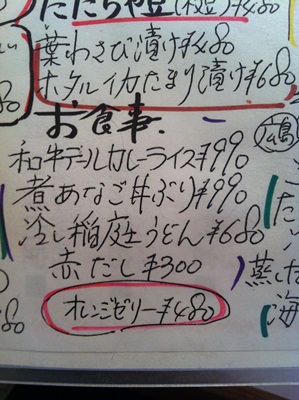 だだちゃ豆(枝豆)¥480
葉わさび漬け¥480
ホタルイカたまり漬け¥680
お食事、
和牛テールカレーライス¥990
煮あなご丼ぶり¥990
冷し稲庭うどん¥680
赤だし¥300
オレンジゼリー¥480
広島
蒸し
海